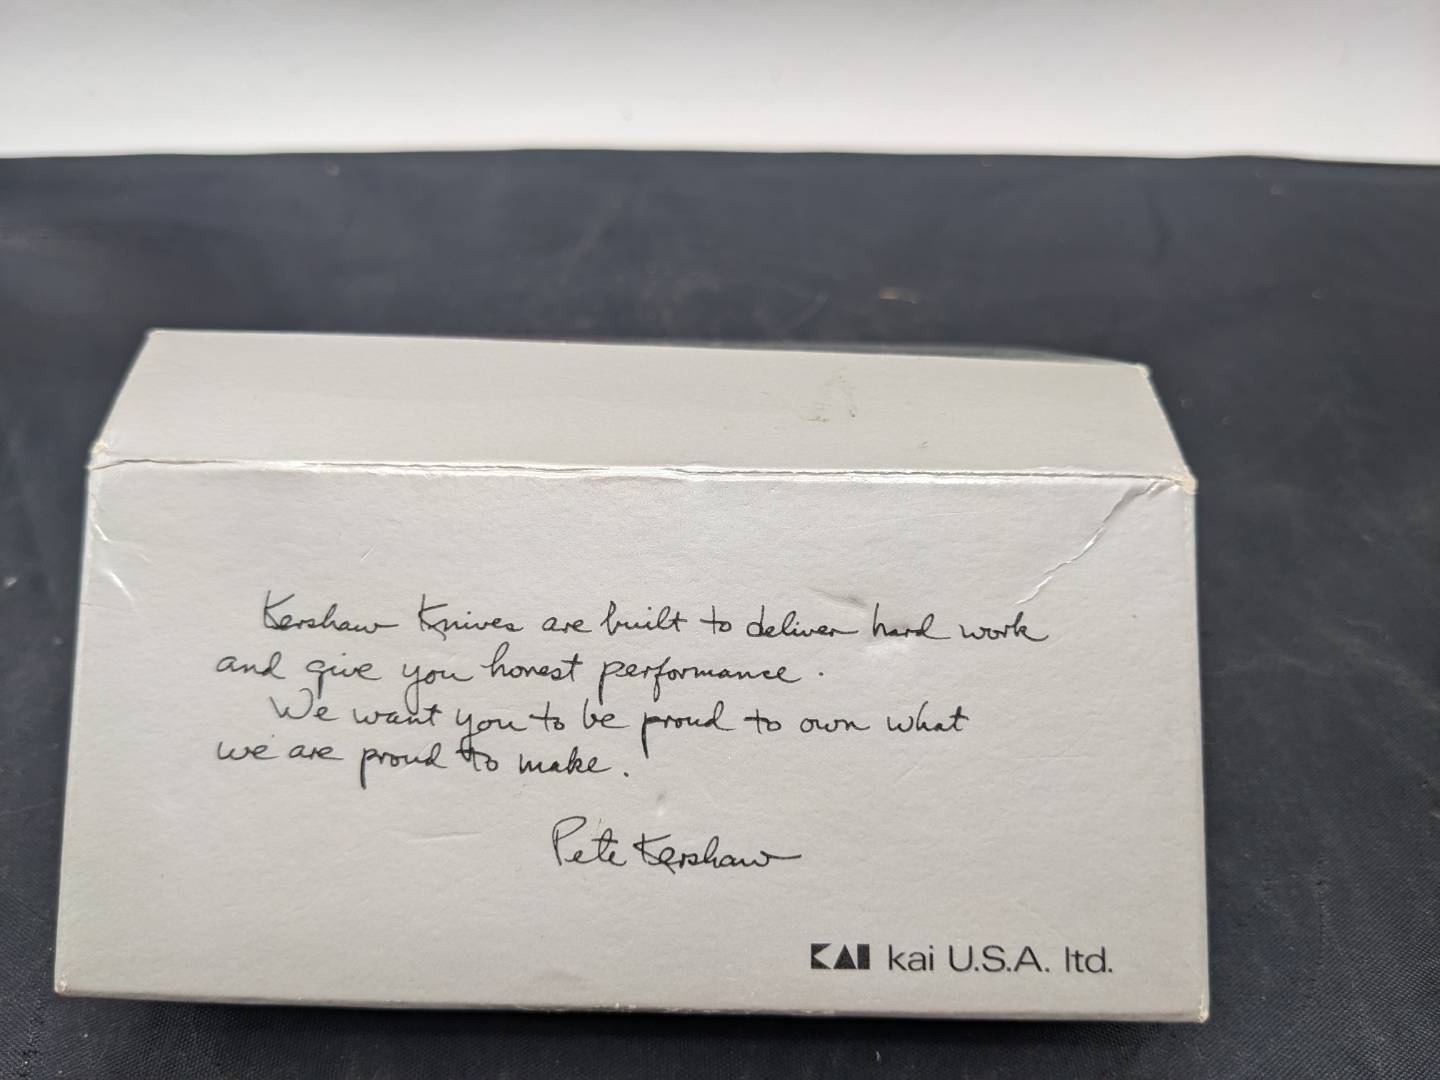 Kershaw Knives are built to deliver hard work
and give you honest performance.
We want you to be proud to own what
we are proud to make.
Pete Kershaw
KAI kai U.S.A. ltd.